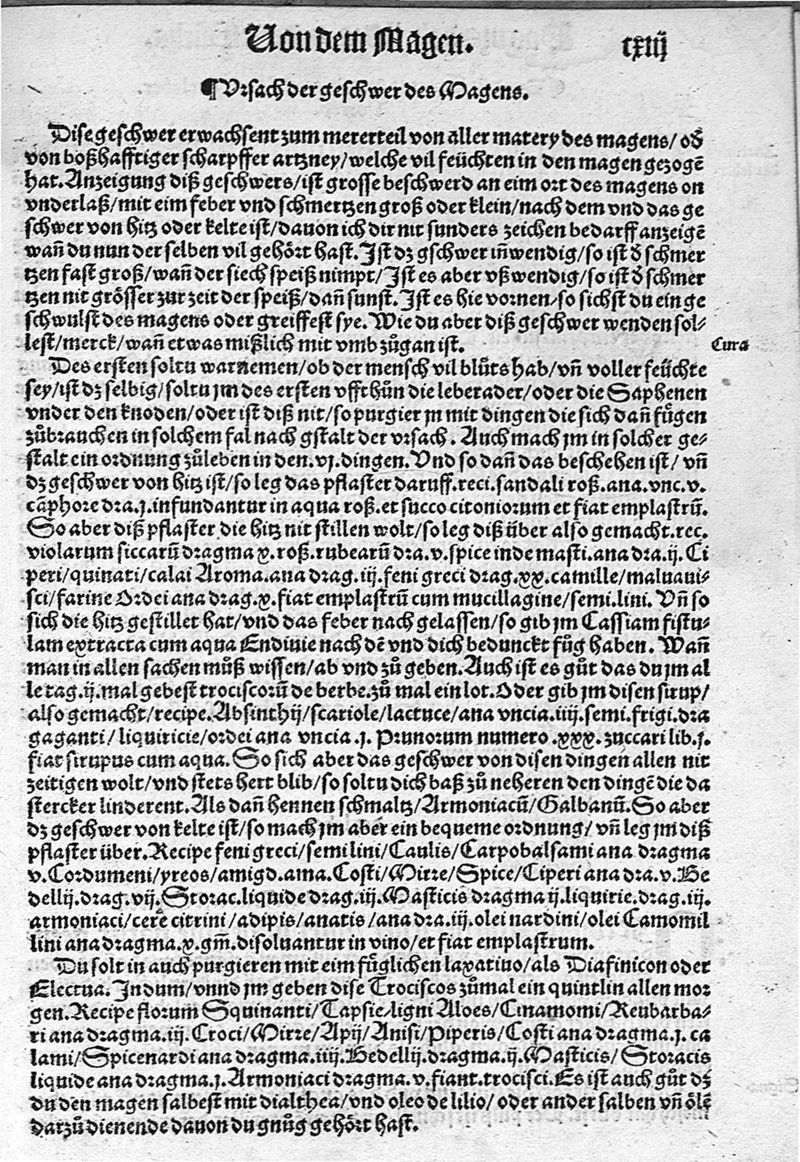 Von dem Magen. cxiij
¶ Vrsach der geschwer des Magens.
Dise geschwer erwachsent zum mererteil von aller matery des magens/ od̕
von boßhafftiger scharpffer artzney/ welche vil feüchten in den magen gezogē
hat. Anzeigung diß geschwers/ ist grosse beschwerd an eim ort des magens on
vnderlaß/ mit eim feber vnd schmertzen groß oder klein/ nach dem vnd das ge
schwer von hitz oder kelte ist/ dauon ich dir nit sunders zeichen bedarff anzeigē
wañ du nun der selben vil gehört hast. Ist dz gschwer iñwendig/ so ist d̕ schmer
tzen fast groß/ wañ der siech speiß nimpt/ Ist es aber vßwendig/ so ist d̕ schmer
tzen nit grösser zur zeit der speiß/ dañ sunst. Ist es hie vornen/ so sichst du ein ge
schwulst des magens oder greiffest sye. Wie du aber diß geschwer wenden sol⸗
lest/ merck/ wañ etwas mißlich mit vmb zůgan ist. Cura
Des ersten soltu warnemen/ ob der mensch vil blůts hab/ vñ voller feüchte
sey/ ist dz selbig/ soltu jm des ersten vffthůn die leberader/ oder die Saphenen
vnder den knoden/ oder ist diß nit/ so purgier jn mit dingen die sich dañ fůgen
zůbrauchen in solchem fal nach gstalt der vrsach. Auch mach jm in solcher ge⸗
stalt ein ordnung zůleben in den .vj. dingen. Vnd so dann das beschehen ist/ vñ
dz geschwer von hitz ist/ so leg das pflaster daruff. reci. sandali roß. ana. vnc. v.
cāphore dra. j. infundantur in aqua roß. et succo citoniorum et fiat emplastrū.
So aber diß pflaster die hitz nit stillen wolt/ so leg diß über also gemacht. rec.
violarum siccarū dragma x. roß. rubearū dra. v. spice inde masti. ana dra. ij. Ci
peri/ quinati/ calai Aroma. ana drag. iij. feni greci drag. xx. camille/ maluaui⸗
sci/ farine Ordei ana drag. x. fiat emplastrū cum mucillagine/ semi. lini. Vñ so
sich die hitz gestillet hat/ vnd das feber nach gelassen/ so gib jm Cassiam fistu⸗
lam extracta cum aqua Endiuie nach dē vnd dich bedunckt fůg haben. Wañ
man in allen sachen můß wissen/ ab vnd zů geben. Auch ist es gůt das du jm al
le tag .ij. mal gebest trociscorū de berbe. zů mal ein lot. Oder gib jm disen sirup/
also gemacht/ recipe. Absinthij/ scariole/ lactuce/ ana vncia. iiij. semi. frigi. dra
gaganti/ liquiricie/ ordei ana vncia. j. Prunorum numero .xxx. zuccari lib. j.
fiat sirupus cum aqua. So sich aber das geschwer von disen dingen allen nit
zeitigen wolt/ vnd stets hert blib/ so soltu dich baß zů neheren den dingē die da
stercker linderent. Als dañ hennen schmaltz/ Armoniacū/ Galbanū. So aber
dz geschwer von kelte ist/ so mach jm aber ein bequeme ordnung/ vñ leg jm diß
pflaster über. Recipe feni greci/ semi lini/ Caulis/ Carpobalsami ana dragma
v. Cordumeni/ yreos/ amigd. ama. Costi/ Mirre/ Spice/ Ciperi ana dra. v. Be
dellij. drag. vij. Storac. liquide drag. iij. Masticis dragma ij. liquirie. drag. iij.
armoniaci/ cere citrini/ adipis/ anatis/ ana dra. iij. olei nardini/ olei Camomil
lini ana dragma. x. gm̄. disoluantur in vino/ et fiat emplastrum.
Du solt in auch purgieren mit eim fůglichen laxatiuo/ als Diafinicon oder
Electua. Indum/ vnnd jm geben dise Trociscos zůmal ein quintlin allen mor
gen. Recipe florum Squinanti/ Tapsie/ ligni Aloes/ Cinamomi/ Reubarba⸗
ri ana dragma. iij. Croci/ Mirre/ Apij/ Anisi/ Piperis/ Costi ana dragma. j. ca
lami/ Spicenardi ana dragma. iiij. Bedellij. dragma. ij. Masticis/ Storacis
liquide ana dragma. j. Armoniaci dragma. v. fiant. trocisci. Es ist auch gůt dz
du den magen salbest mit dialthea/ vnd oleo de lilio/ oder ander salben vñ ölē
darzů dienende dauon du gnůg gehört hast.